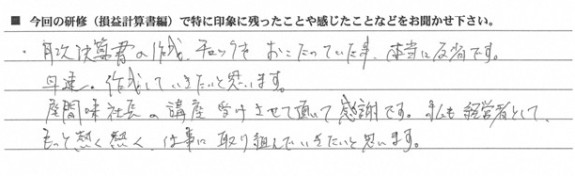 ■ 今回の研修（損益計算書編）で特に印象に残ったことや感じたことなどをお聞かせ下さい。
・月次決算書の作成、チェックをおこたっていた事、本当に反省です。
早速、作成していきたいと思います。
座間味社長の講座受けさせて頂いて感謝です。私も経営者として、
もっと熱く熱く、仕事に取り組んでいきたいと思います。